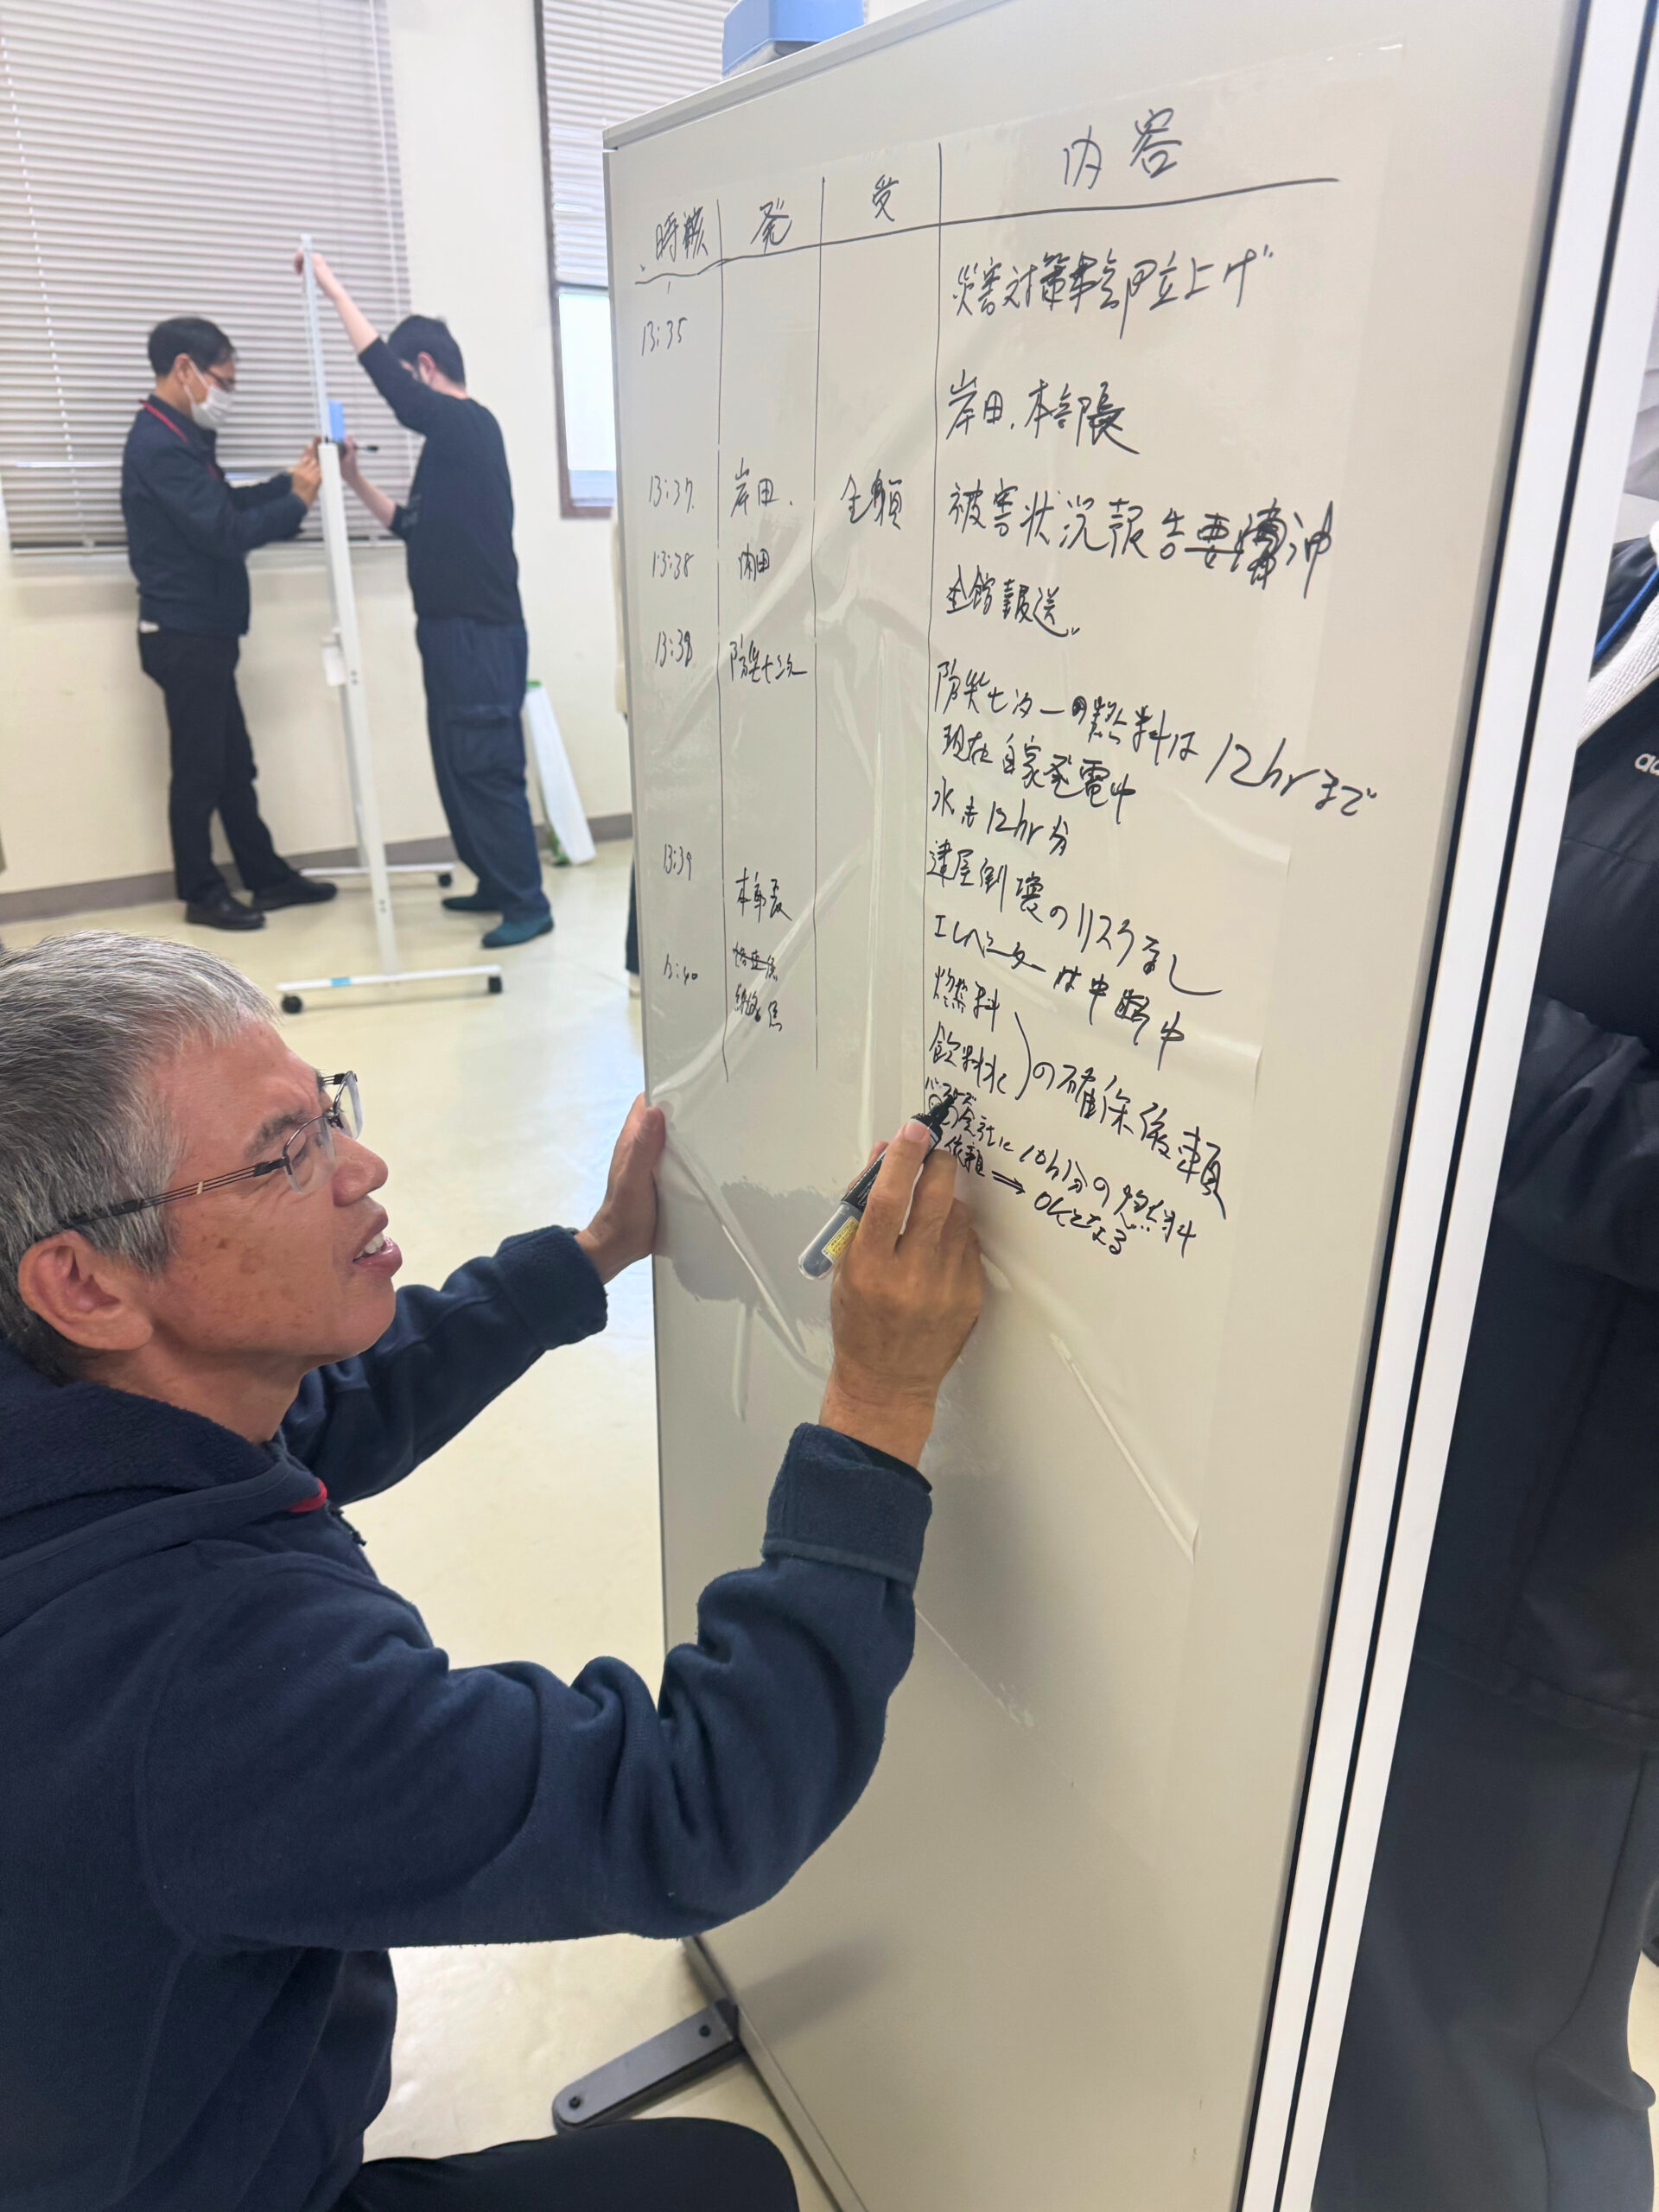 時核 発 受 内容
13:35 災害対策本部立上げ
岸田.本部長
13:37. 岸田. 全 被害状況報告要
13:38 内田 全館 送
13:38 防災センター 防災センターの燃料は12hrまで
現在自家発電中
水も12hr分
建屋倒壊のリスクなし
13:39 本部長 エレベーターは中断中
燃料
飲料水 の確保依頼
13:40
会社に10h分の燃料
依頼⇒OKとなる
ad